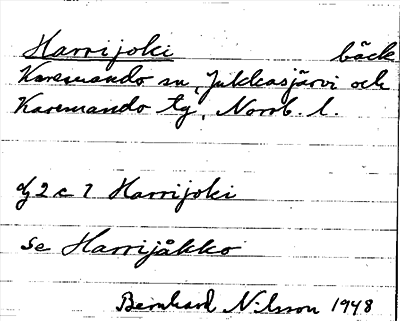 Harrijoki bäck
Karesuando sn, Jukkasjärvi och
Karesuando tg, Norrb. l.
dj 2 c 7 Harrijoki
se Harrijåkko
Bernhard Nilsson 1948